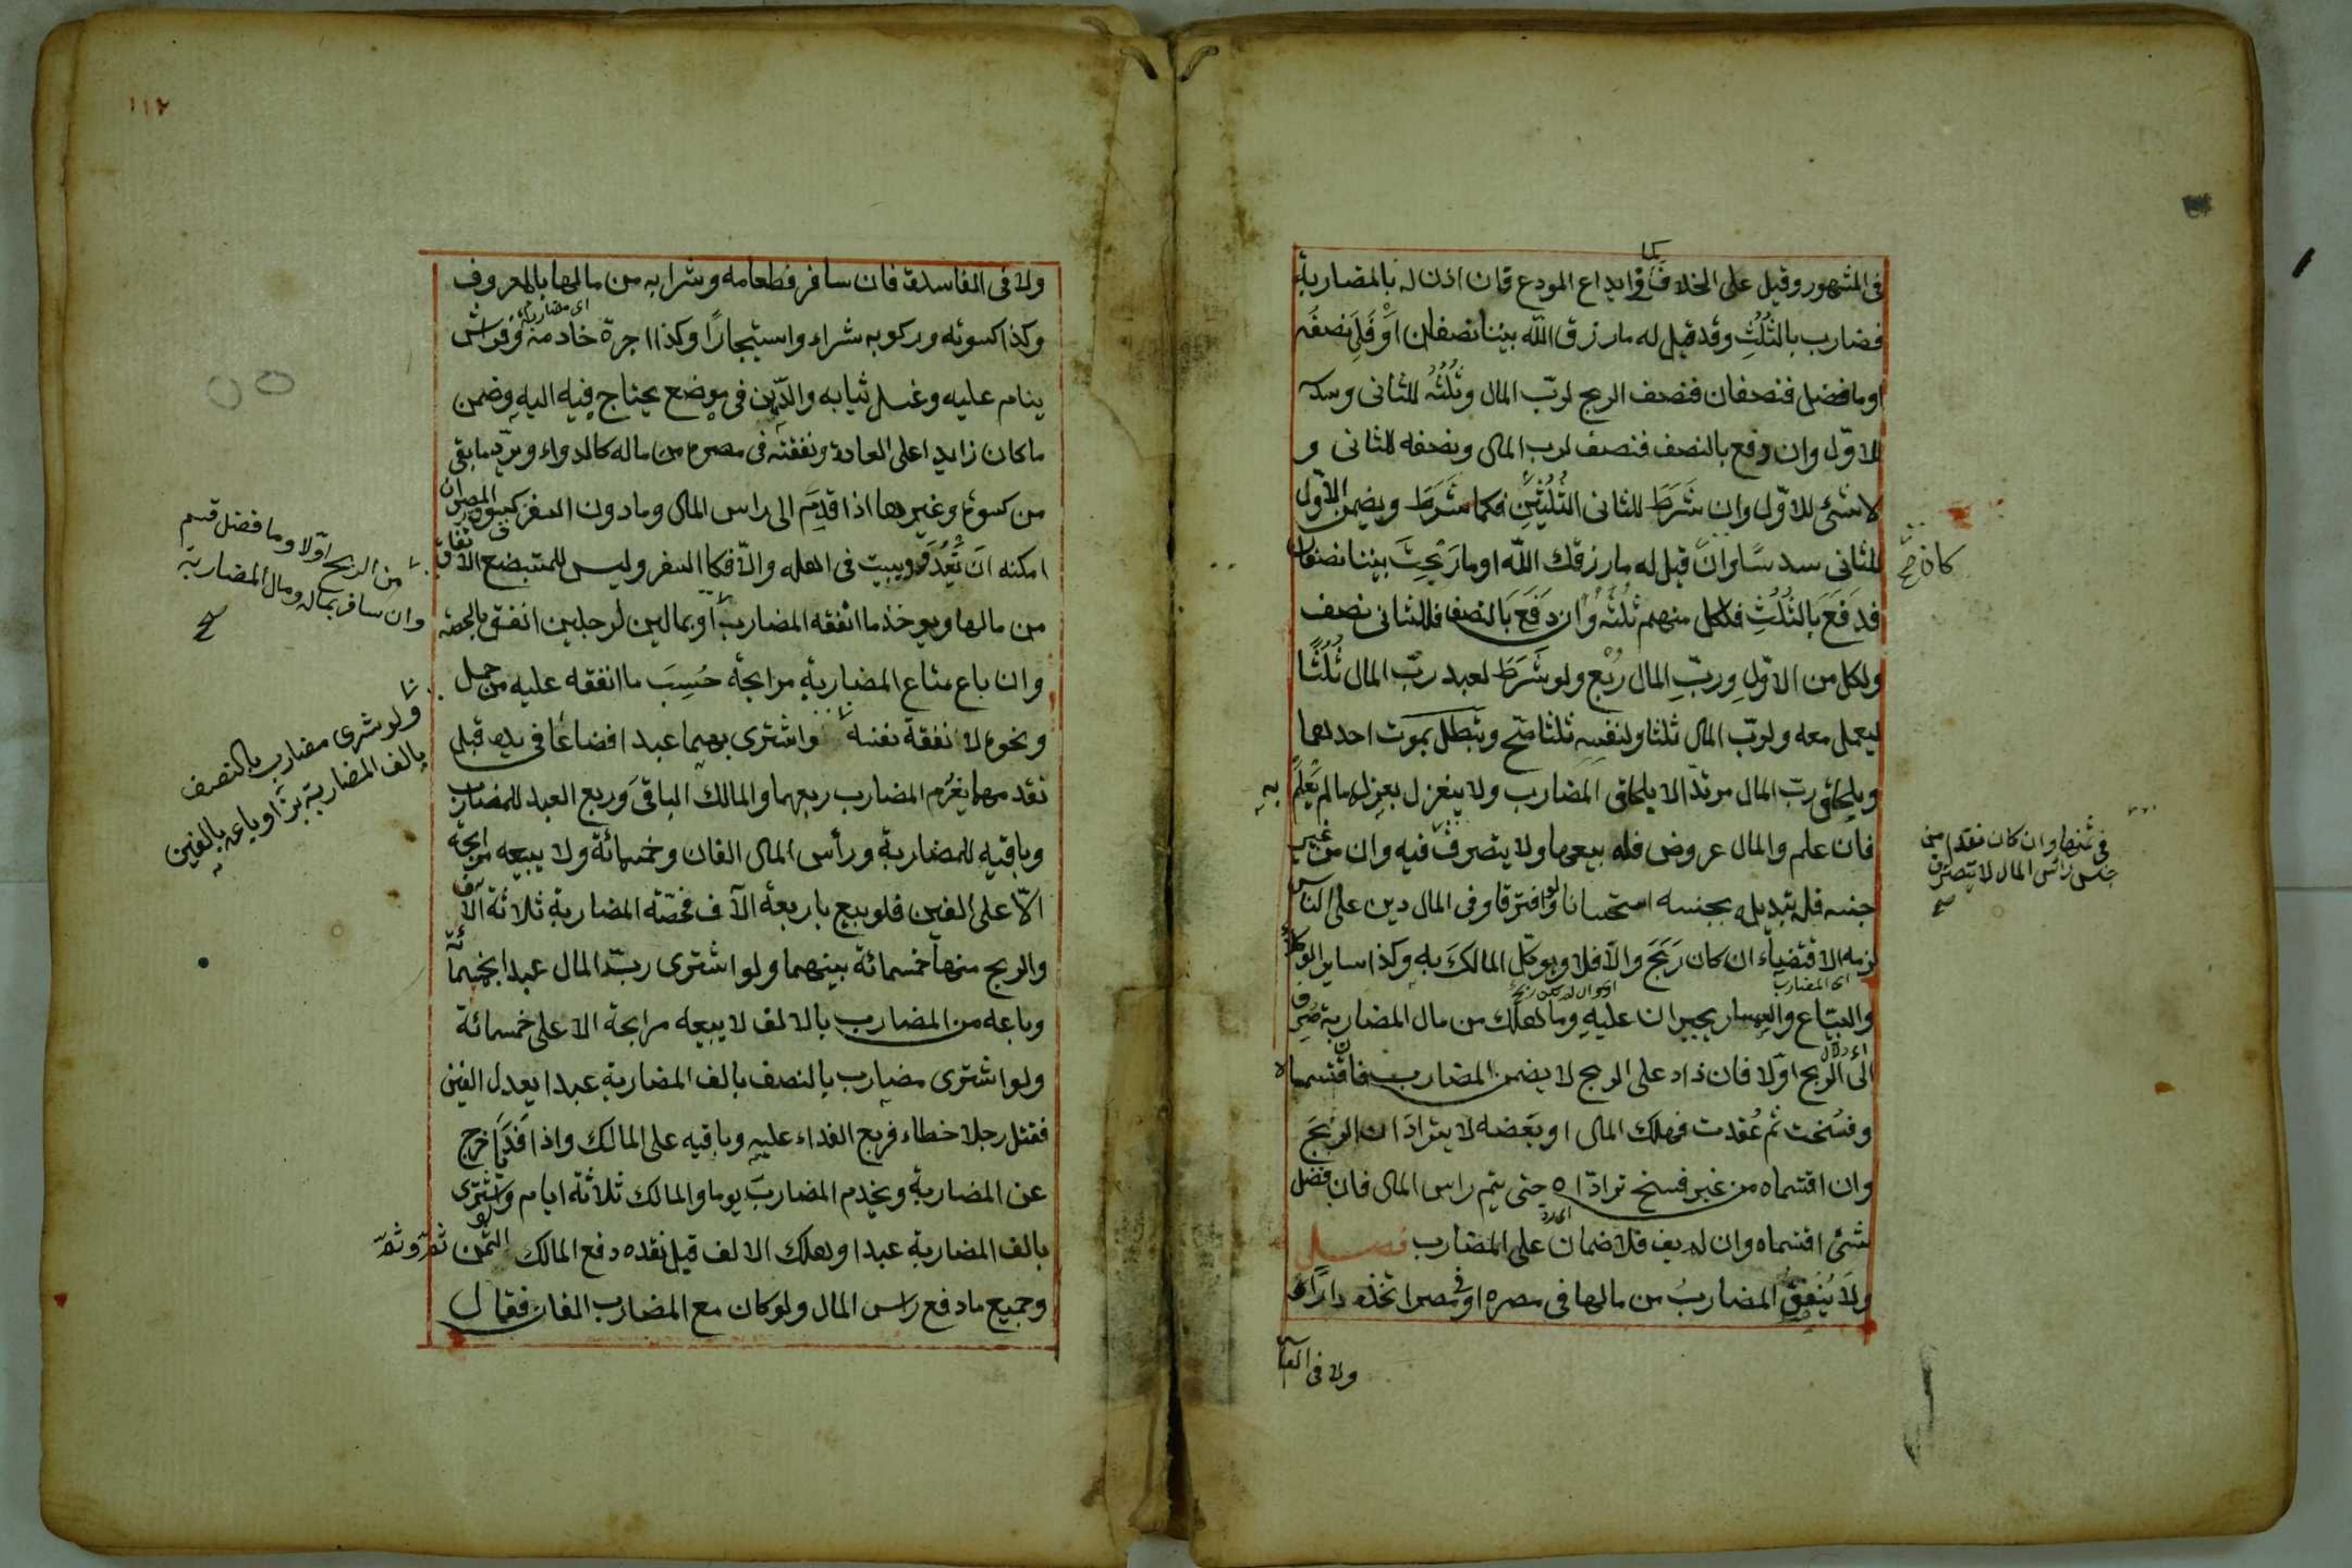 فى المشهور وقيل على الخلاف كما فى ايداع المودع فان اذن له بالمضاربة
فضارب بالثُلُثِ وقد قيل له ما رزق الله بيننا نصفان اَوْ فَلِى نصفُه
او ما فضل فنصفان فنصف الربح لربّ المال وثُلُثُه للثانى وسدسه
للاوّل وان دفع بالنصف فنصف لرب المال ونصفه للثانى و
لا شئ للاوّل وان شَرَطَ للثانى الثُلُثَينِ فكما شَرَطَ ويضمن الاوّل
للثانى سدسًا وانْ قيل له ما رزقك الله او ما رَبِحتَ بيننا نصفان
فدَفَعَ بَالثُلُثِ فلكل منهم ثُلُثُه وَان دَفَعَ بَالنصف فللثانى نصف
ولكل من الاوّلِ وربِّ المال رُبْع ولو شَرَطَ لعبد ربِّ المال ثُلُثًا
ليعمل معه ولربّ المال ثلثا ولنفسِه ثلثا صَحّ وتبطل بموت احدهما
ويلحاق ربّ المال مرتدّا لا يلحاق المضارب ولا ينعزل بعزله ما لم يَعلَم به
فان علم والمال عروض فله بيعها ولا يتصرف فيه وان من غير
جنسه فله تبديله بجنسه استحسانا ولو افترقا وفى المال دين على الناس
لزمه الاقتضاء ان كان رَبَحَ والّا فلا ويوكّل المالكَ به وكذا ساير الوكلاء
اى المضارب
والبيّاع والسمسار يجبران عليه وما هلك من مال المضاربة صرف
اى دلال
الى الربح اوّلا فان زاد على الربح لا يضمن المضارب فان اقتسما
وفسخت ثم عُقدت فهلك المال او بعضه لا يترادّان الربحَ
وان اقتسماه من غير فسخ ترادّاه حتى يتم راس المال فان فضل
شئ اقتسماه وان لم يف فلا ضمان على المضارب فصل
ولَا يُنْفِقُ المضاربُ من مالها فى مصره او فى مصر اتخذه دارًا
ولا فى الفا
كان صح
فى ثمنها وان كان نقدا من
جنس راس المال لا يتصرف
صح
١١٢
ولا فى الفاسدة فان سافر فطعامه وشرابه من مالها بالمعروف
اى مضاربة
وكذا كسوته وركوبه شراء واستيجارًا وكذا اجرة خادمه وفراش
ينام عليه وغسل ثيابه والدّهن فى موضع يحتاج فيه اليه وضمن
ما كان زايدا على العادة ونفقته فى مصره من ماله كالدواء ويردّ ما بقى
من كسوة وغيرها اذا قدِمَ الى راس المال وما دون السفر كسوق المصر ان
امكنه اَن يَّغْدُوَ ويبيت فى اهله والّا فكالسفر وليس للمستبضع الانفاق
من مالها ويوخذ ما انفقه المضارب او بمالين لرجلين انفق بالحصة
وان باع متاع المضاربةِ مرابحةً حُسِبَ ما انفقه عليه من حمل
ونحوه لا نفقة نفسه واشترى بهما عبدا فضاعا فى يده قبل
نقدهما يَغرَم المضارب ربعهما والمالك الباقىَ وربع العبد للمضارب
وباقيه للمضاربةِ ورأس المال الفان وخمسمائة ولا يبيعه مرابحة
الّا على الفين فلو بيع باربعة آلاف فحصّة المضاربة ثلاثة الآف
والربح منها خمسمائة بينهما ولو اشترى ربّ المال عبدا بخمسمائة
وباعه من المضارب بالالف لا يبيعه مرابحة الا على خمسمائة
ولو اشترى مضارب بالنصف بالف المضاربة عبدا يعدل الفين
فقتل رجلا خطاء فربع الفداء عليه وباقيه على المالك واذا فديا خرج
عن المضاربةِ ويخدم المضاربَ يوما والمالك ثلاثة ايام ولو اشترى
بالف المضاربة عبدا وهلك الالف قبل نقده دفع المالك الثمن ثمّ وثمّ
وجميع ما دفع راس المال ولو كان مع المضارب الفان فقال
من الربح اوّلا وما فضل قسم
وان سافر بماله ومال المضاربة
صح
ولو شرى مضارب بالنصف
بالف المضاربة بزّا وباعه بالفين